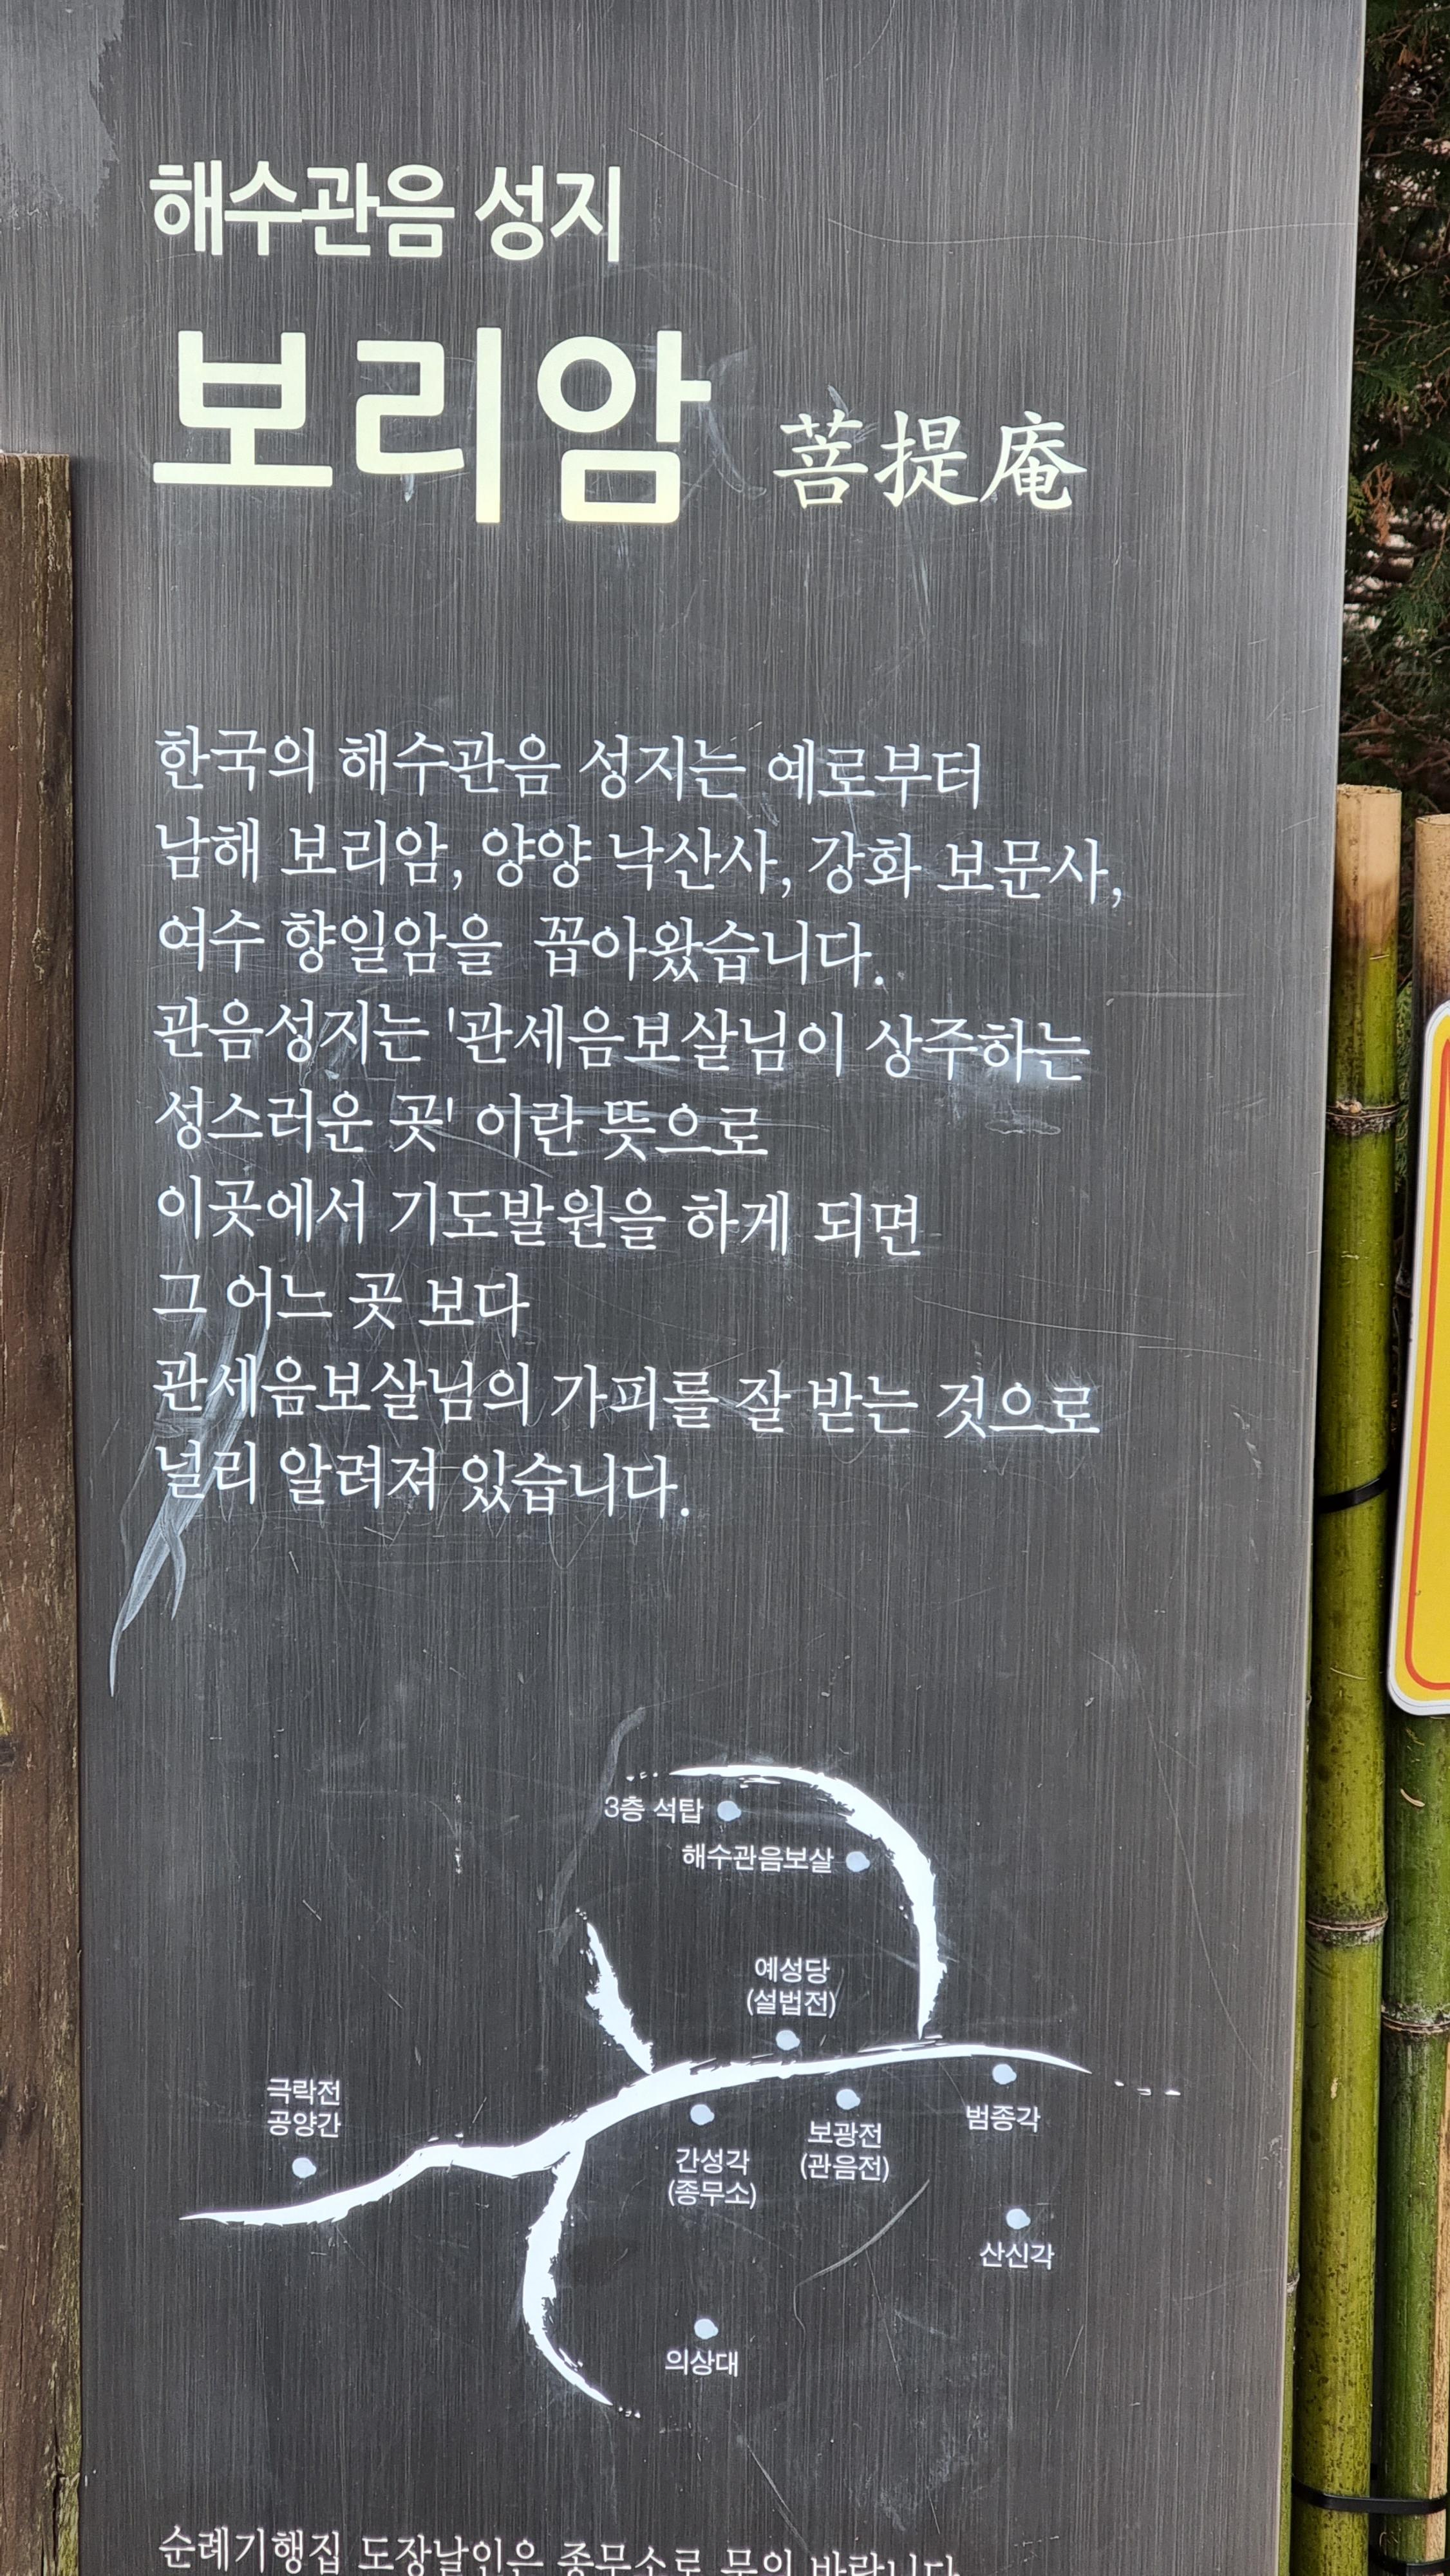 해수관음 성지
보리암 菩提庵
한국의 해수관음 성지는 예로부터
남해 보리암, 양양 낙산사, 강화 보문사,
여수 향일암을 꼽아왔습니다.
관음성지는 '관세음보살님이 상주하는
성스러운 곳' 이란 뜻으로
이곳에서 기도발원을 하게 되면
그 어느 곳 보다
관세음보살님의 가피를 잘 받는 것으로
널리 알려져 있습니다.
3층 석탑
해수관음보살
예성당
(설법전)
극락전
공양간
간성각
(종무소)
보광전
(관음전)
범종각
산신각
의상대
순례기행집 도장날인은 종무소로 문의 바랍니다